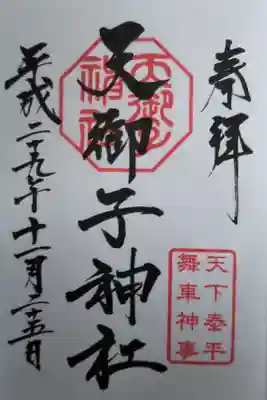 奉拝
天下泰平
舞車神事
天御子神社
天御子
神社
平成二十九年十一月二十五日